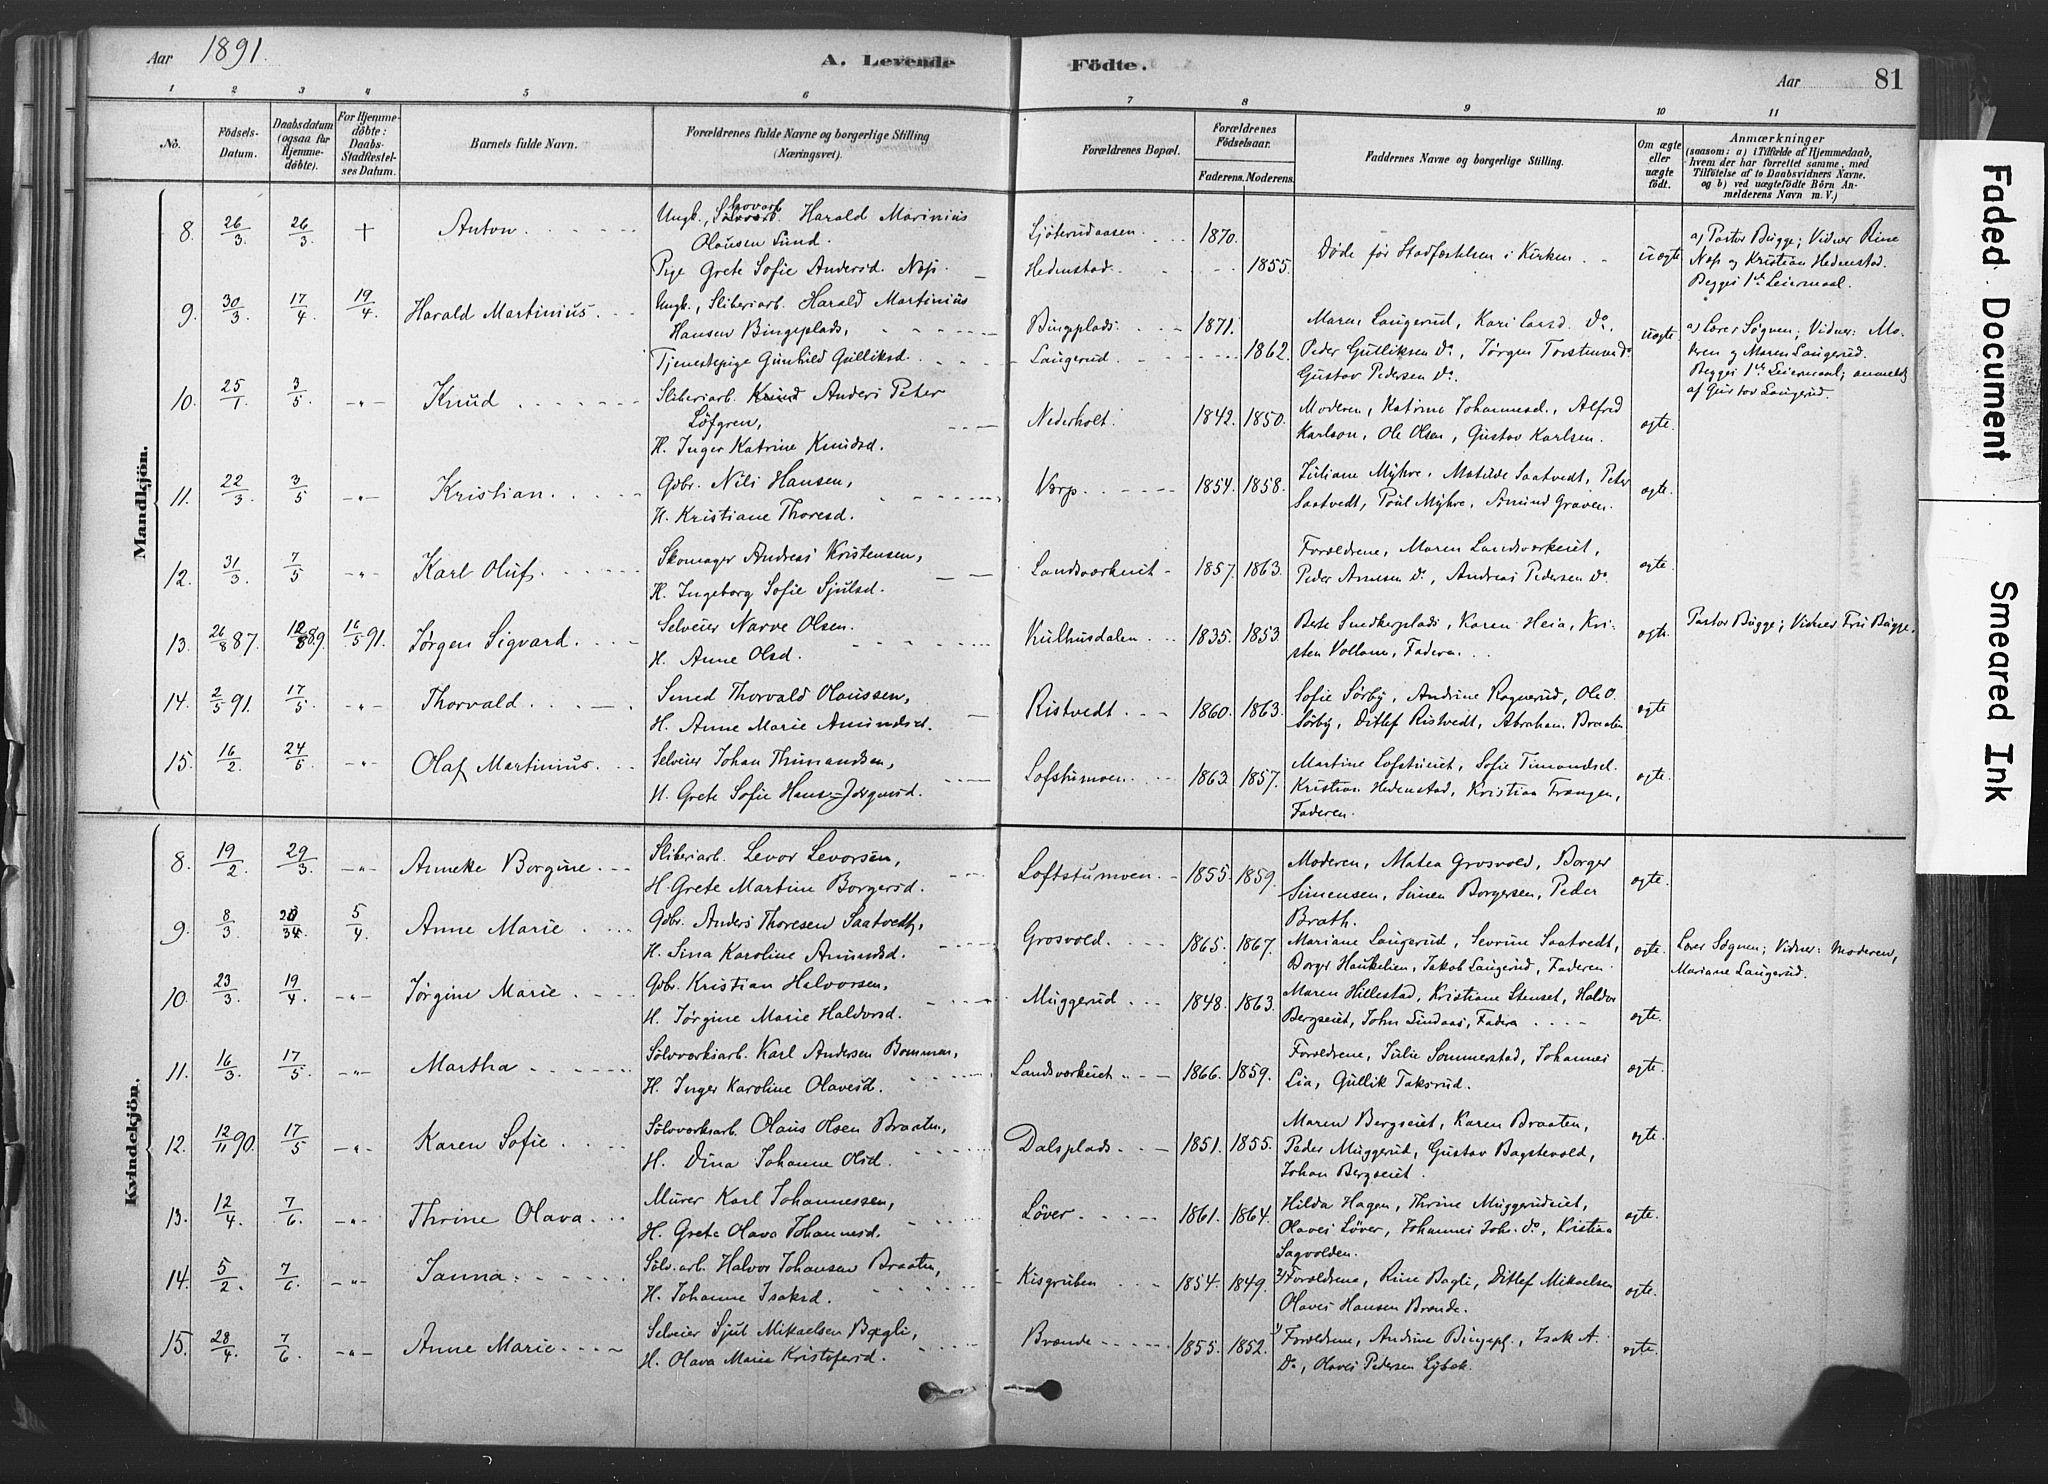 Aar 1891.
A. Levende Födte.
Aar 81
1 2 3 4 5 6 7 8 9 10 11
No.
Födsels-Datum.
Daabsdatum (ogsaa for Hjemmedöbte).
For Hjemmedöbte: Daabs-Stadfæstelses Datum.
Barnets fulde Navn.
Forældrenes fulde Navne og borgerlige Stilling (Næringsvei).
Forældrenes Bopæl.
Forældrenes Födselsaar.
Faderens. Moderens.
Faddernes Navne og borgerlige Stilling.
Om ægte eller uægte födt.
Anmærkninger
(saasom: a) i Tilfælde af Hjemmedaab, hvem der har forrettet samme, med Tilföielse af to Daabsvidners Navne, og b) ved uægtefödte Börn Anmelderens Navn m. V.)
Mandkjön.
8. 26/3 26/3 + Anton
Ungk., Harald Marinius
Olausen Lund.
Pige Grete Sofie Andersd. Næs.
Hedenstad
1870. 1855.
Døde før Stadfæstelsen i Kirken
uægte
a) Pastor Bugge; Vidner Rine
Næs og Kristian Hedenstad.
Begges 1ste Leiermaal.
9. 30/3 17/4 19/4 Harald Martinius.
Ungk., Sliberiarb. Harald Martinius
Hansen Bingeplads,
Tjenestepige Gunhild Gulliksd.
Bingeplads
Laugerud
1871. 1862.
Maren Laugerud, Kari Larsd. Do.
Peder Gulliksen Do, Jørgen Torstensen Do
Gustav Pedersen Do.
uægte
a) Lærer Søgnen; Vidner: Mo-
deren og Maren Laugerud.
Begges 1ste Leiermaal; anmeldt
af Gustav Laugerud.
10. 25/1 3/5 -"- Knud
Sliberiarb. Knud Anders Peter
Löfgren,
H. Inger Katrine Knudsd.
Nederholt
1842. 1850.
Moderen, Katrine Johannesd., Alfred
Karlson, Ole Olsen, Gustav Karlsen.
ægte.
11. 22/3 3/5 -"- Kristian
Gdbr. Nils Hansen,
H. Kristiane Thoresd.
Værp
1854. 1858.
Juliane Myhre, Matilde Saatvedt, Peter
Saatvedt, Poul Myhre, Amund Graven.
ægte.
12. 31/3 7/5 -"- Karl Oluf
Skomager Andreas Kristensen,
H. Ingeborg Sofie Sjulsd.
Landsværkeiet
1857. 1863.
Forældrene, Maren Landsværkeiet,
Peder Do, Andreas Pedersen Do.
ægte.
13. 26/8 87. 89. 16/5 91. Jørgen Sigvard.
Selveier Narve Olsen.
H. Anne Olsd.
Kulhusdalen
1835. 1853
Berte Snedkerplads, Karen Heia, Kri-
sten Vollane, Fadern.
ægte.
Pastor Bugge; Vidner Fru Bugge.
14. 2/5 91. 17/5 -"- Thorvald
Smed Thorvald Olaussen,
H. Anne Marie Amundsd.
Ristvedt
1860. 1863.
Sofie Sørby, Andrine Ragnerud, Ole O.
Sørby, Ditlef Ristvedt, Abraham Braaten
ægte
15. 16/2 24/5 -"- Olaf Martinius.
Selveier Johan Thimandsen,
H. Grete Sofie Hans-Jørgensd.
Lofstumoen
1863. 1857.
Martine Lofstueiet, Sofie Timandsd.
Kristian Hedenstad, Kristian Trangen,
Faderen.
ægte
Kvindekjön.
8. 19/2 29/3 -"- Anneke Borgine
Sliberiarb. Levor Levorsen,
H. Grete Martine Borgersd.
Loftstumoen
1855. 1859.
Moderen, Matea Grosvold, Borger
Simensen, Simen Borgersen, Peder
Brath.
ægte.
9. 8/3 5/4 Anne Marie
Gdbr. Anders Thoresen Saatvedt,
H. Sina Karoline Amundsd.
Grosvold.
1865. 1867.
Mariane Laugerud, Sevrine Saatvedt,
Borger Haukelien, Jakob Laugerud, Faderen.
ægte.
Lærer Søgnen; Vidner: Moderen,
Mariane Laugerud.
10. 23/3 19/4 -"- Jørgine Marie
Gdbr. Kristian Halvorsen,
H. Jørgine Marie Haldorsd.
Muggerud
1848. 1863.
Maren Hillestad, Kristiane Stenset, Haldor
Bergseiet, John Lindaas, Fadern
ægte.
11. 16/3 17/5 -"- Martha
Sølvværksarb. Karl Andersen Bommen,
H. Inger Karoline Olavesd.
Landsværkeiet
1866. 1859.
Forældrene, Julie Sommerstad, Johannes
Lia, Gullik Taksrud.
ægte.
12. 12/11 90. 17/5 -"- Karen Sofie
Sølvværksarb. Olaus Olsen Braaten,
H. Dina Johanne Olsd.
Dalsplads
1851. 1855.
Maren Bergseiet, Karen Braaten,
Peder Muggerud, Gustav Bagstevold,
Johan Bergseiet.
ægte.
13. 12/4 7/6 -"- Thrine Olava
Murer Karl Johannessen,
H. Grete Olava Johannesd.
Løver
1861. 1864.
Hilda Hagen, Thrine Muggerudeiet,
Olaves Løver, Johannes Joh. Do, Kristian
Sagvolden.
ægte.
14. 5/2 7/6 -"- Janna
Sølv.arb. Halvor Johansen Braaten,
H. Johanne Isaksd.
Kisgruben
1854. 1849.
2) Forældrene, Rine Bagli, Ditlef Mikaelsen
Olaves Hansen Brænde.
ægte.
15. 28/4 7/6 -"- Anne Marie
Selveier Sjul Mikaelsen Bægli,
H. Olava Maria Kristofersd.
Brænde
1855. 1852.
1) Forældrene, Andrine Bingepl., Isak A.
Do, Olaves Pedersen Lybæk.
ægte.
Faded Document
Smeared Ink